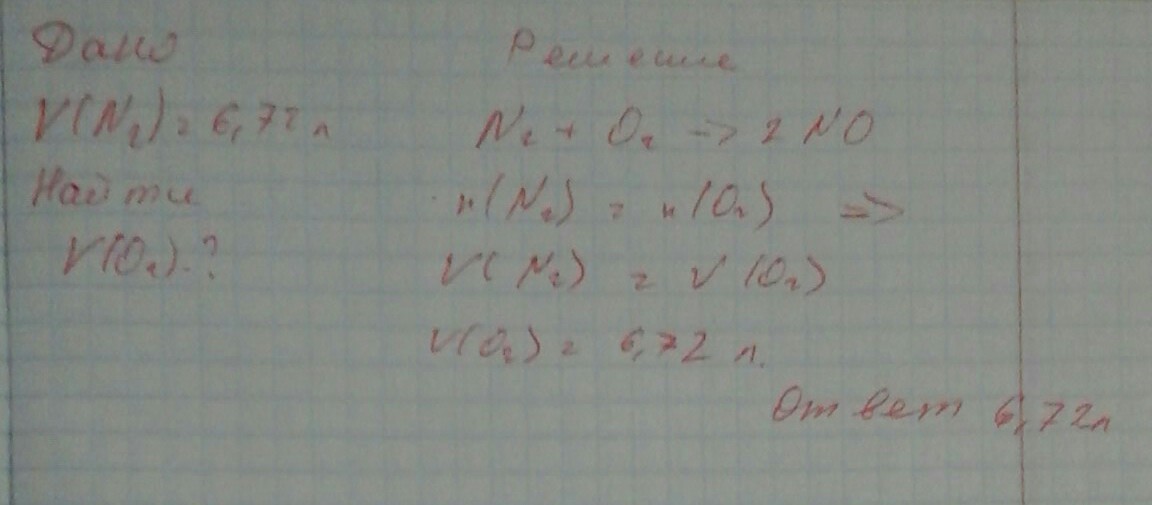 Дано
V(N₂) = 6,72 л
Найти
V(O₂).?
Решение
N₂ + O₂ -> 2 NO
n(N₂) = n(O₂) =>
V(N₂) = V(O₂)
V(O₂) = 6,72 л.
Ответ 6,72 л